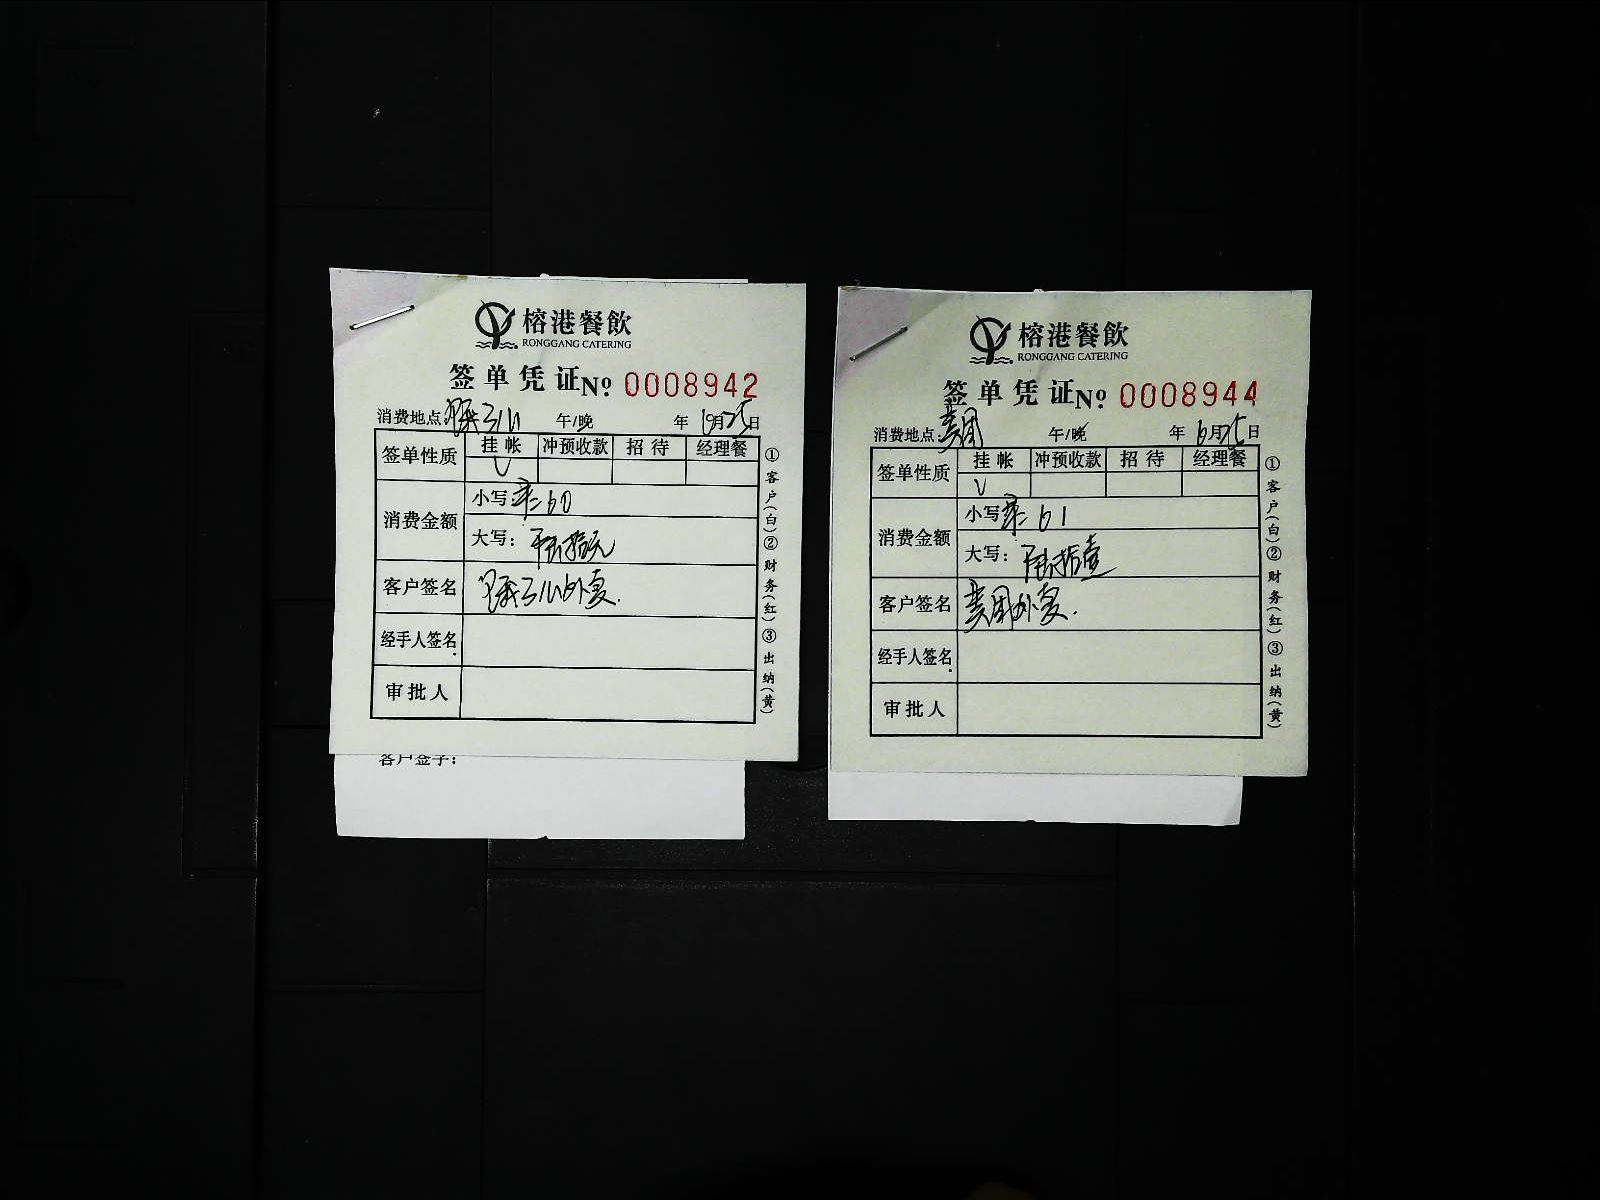 榕港餐飲
RONGGANG CATERING
签单凭证 No 0008942
消费地点: 饿了么 午/晚 年 6月25日
签单性质 挂帐 冲预收款 招待 经理餐
√
消费金额 小写: 60
大写: 陆拾元
客户签名 饿了么外卖.
经手人签名
审批人
①客户(白)②财务(红)③出纳(黄)
客户签字:
榕港餐飲
RONGGANG CATERING
签单凭证 No 0008944
消费地点: 美团 午/晚 年 6月25日
签单性质 挂帐 冲预收款 招待 经理餐
√
消费金额 小写: 61
大写: 陆拾壹
客户签名 美团外卖.
经手人签名
审批人
①客户(白)②财务(红)③出纳(黄)